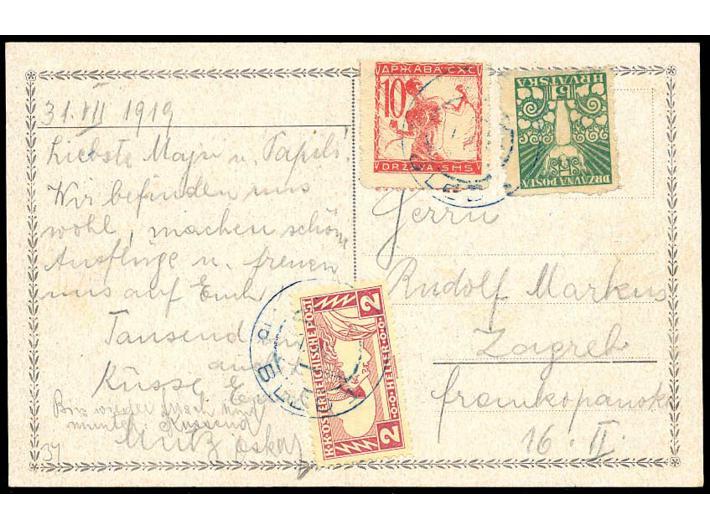 31. VII 1919
Liebste Maju u. Papili!
Wir befinden uns
wohl, machen schöne
Ausflüge u. freuen
uns auf Euch
Tausend
Küsse
Mutz Oskar
ДРЖАВА СХС
10
DRŽAVA SHS
HRVATSKA
15
DRŽAVNA POŠTA
K.K. ÖSTERREICHISCHE POST
2
2
HELLER
BLED
BLED
Herrn
Rudolf Markus
Zagreb
frankopanska
16. II.